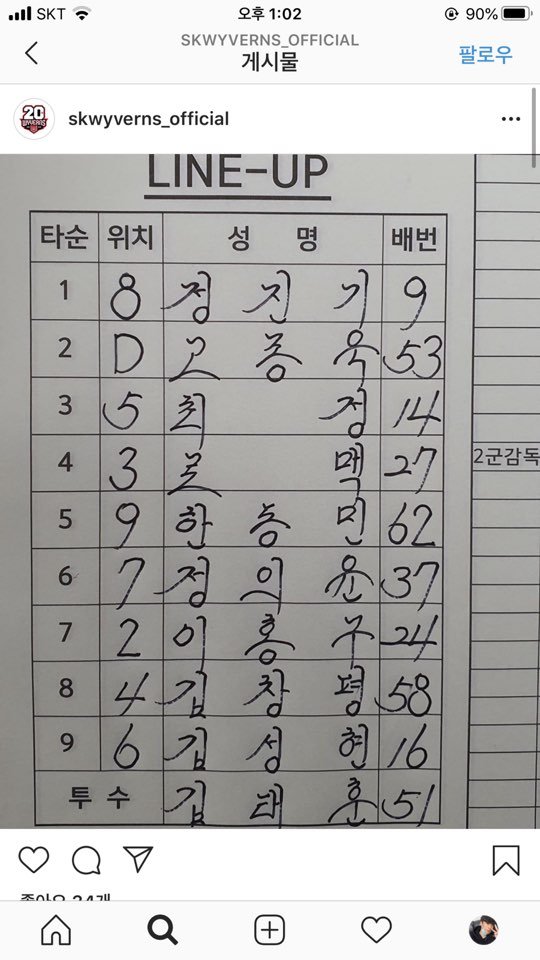 SKT 오후 1:02 90%
SKWYVERNS_OFFICIAL
게시물 팔로우
20
WYVERNS
skwyverns_official
LINE-UP
타순 위치 성 명 배번
1 8 정 진 기 9
2 D 고 종 욱 53
3 5 최 정 14
4 3 로 맥 27
2군감독
5 9 한 동 민 62
6 7 정 의 윤 37
7 2 이 홍 구 24
8 4 김 창 평 58
9 6 김 성 현 16
투 수 김 태 훈 51
좋아요 24개